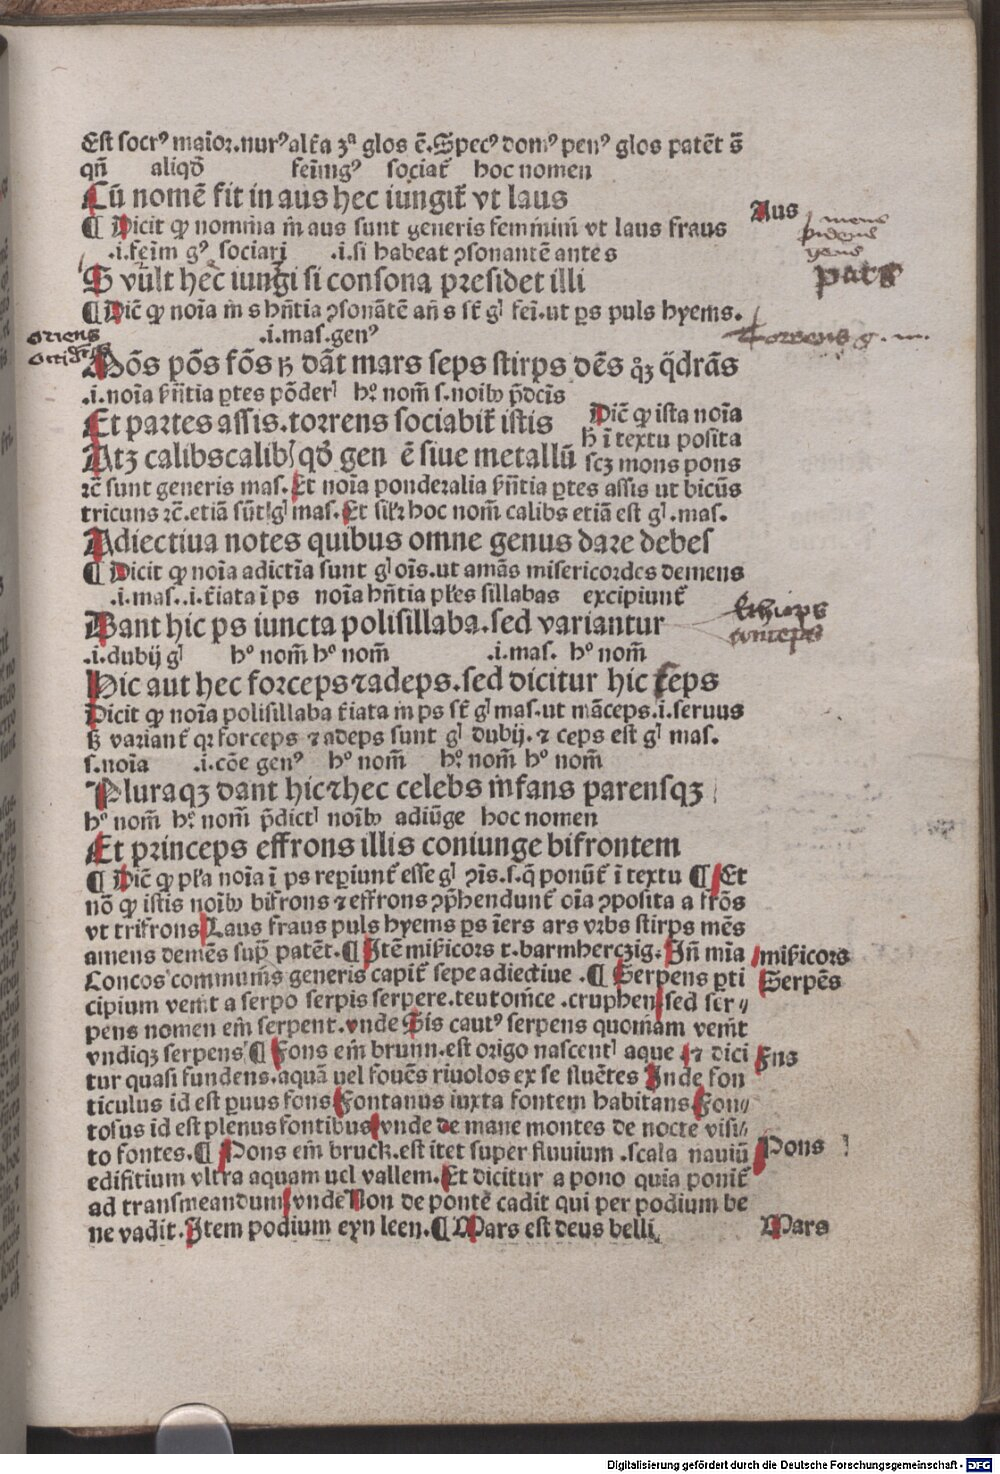 Est socrꝰ maior.nurꝰ alt̄a ꝫᵃ glos ē. Specꝰ domꝰ penꝰ glos patēt s̄
qn̄ aliqd̄ fēingꝰ sociat̄ hoc nomen
Cū nomē fit in aus hec iungit̄ vt laus
Aus
mens
bidens
gens
pars
¶ Dicit ꝙ nomina in aus sunt generis feminini vt laus fraus
.i.feīm gꝰ sociari .i.si habeat ꝯsonantē ante s
S vult hec iungi si consona presidet illi
¶ Dic̄ ꝙ noīa in s hn̄tia ꝯsonātē an̄ s st̄ gl̄ fei.ut ꝑs puls hyems.
.i.mas.genꝰ
oriens
occidens
Torrens g. m.
Mōs pōs fōs dāt mars seps stirps dēs qꝫ q̄drās
.i.noīa ptes pōder hº nom̄ s.noībꝰ p̄dcīs
Et partes assis.torrens sociabit̄ istis
Dic̄ ꝙ ista noīa
h̄ ī textu posita
Atꝫ calibs calibꝭ qd̄ gen ē siue metallū
scꝫ mons pons
ꝛc̄ sunt generis mas. Et noīa ponderalia ptes assis ut bicūs
tricuns ꝛc̄.etiā sūt gl̄ mas. Et sil̄r hoc nom̄ calibs etiā est gl̄.mas.
Adiectiua notes quibus omne genus dare debes
¶ Dicit ꝙ noīa adictīa sunt gl̄ oīs.ut amās misericordes demens
.i.mas. .i.t̄iata ī ps noīa hn̄tia pl̄es sillabas excipiunt̄
Dant hic ps iuncta polisillaba.sed variantur
Ethiops
conceps
.i.dubij gl̄ hº nom̄ hº nom̄ .i.mas. hº nom̄
Hic aut hec forceps ⁊ adeps.sed dicitur hic seps
Dicit ꝙ noīa polisillaba t̄iata in ps st̄ gl̄ mas.ut māceps.i.seruus
variant̄ qꝛ forceps ⁊ adeps sunt gl̄ dubij. ⁊ ceps est gl̄ mas.
s.noīa .i.cōe genꝰ hº nom̄ hº nom̄ hº nom̄
Pluraqꝫ dant hic ⁊ hec celebs infans parensqꝫ
hº nom̄ hº nom̄ p̄dict noībꝰ adiūge hoc nomen
Et princeps effrons illis coniunge bifrontem
¶ Dic̄ ꝙ pl̄a noīa ī ps reꝑiunt̄ esse gl̄ ꝯīs.s.q̄ ponūt̄ ī textu ¶ Et
nō ꝙ istis noībꝰ bifrons ⁊ effrons ꝯp̄hendunt̄ oīa ꝯposita a frōs
vt trifrons Laus fraus puls hyems ꝑs iers ars vrbs stirps mēs
amens demēs sup̄ patēt. ¶ Itē mis̄icors t. barmherczig. In̄ mīa
mis̄icors
Concos communīs generis capit̄ sepe adiectiue . ¶ Serpens ꝑti
Serpēs
cipium venit a serpo serpis serpere.teutonīce .cruphen sed ser⸗
pens nomen em̄ serpent.vnde Sis cautꝰ serpens quoniam venit
vndiqꝫ serpens ¶ Fons em̄ brunn.est origo nascent aque ⁊ dici
Fns
tur quasi fundens.aquā uel fouēs riuolos ex se fluētes Inde fon
ticulus id est ꝑuus fons Fontanus iuxta fontem habitans Fon⸗
tosus id est plenus fontibus vnde de mane montes de nocte visi⸗
to fontes. ¶ Pons em̄ bruck.est itet super fluuium .scala nauiū
Pons
edifitium vltra aquam uel vallem. Et dicitur a pono quia ponit̄
ad transmeandum vnde Non de pontē cadit qui per podium be
ne vadit. Item podium eyn leen. ¶ Mars est deus belli
Mars
Digitalisierung gefördert durch die Deutsche Forschungsgemeinschaft - DFG